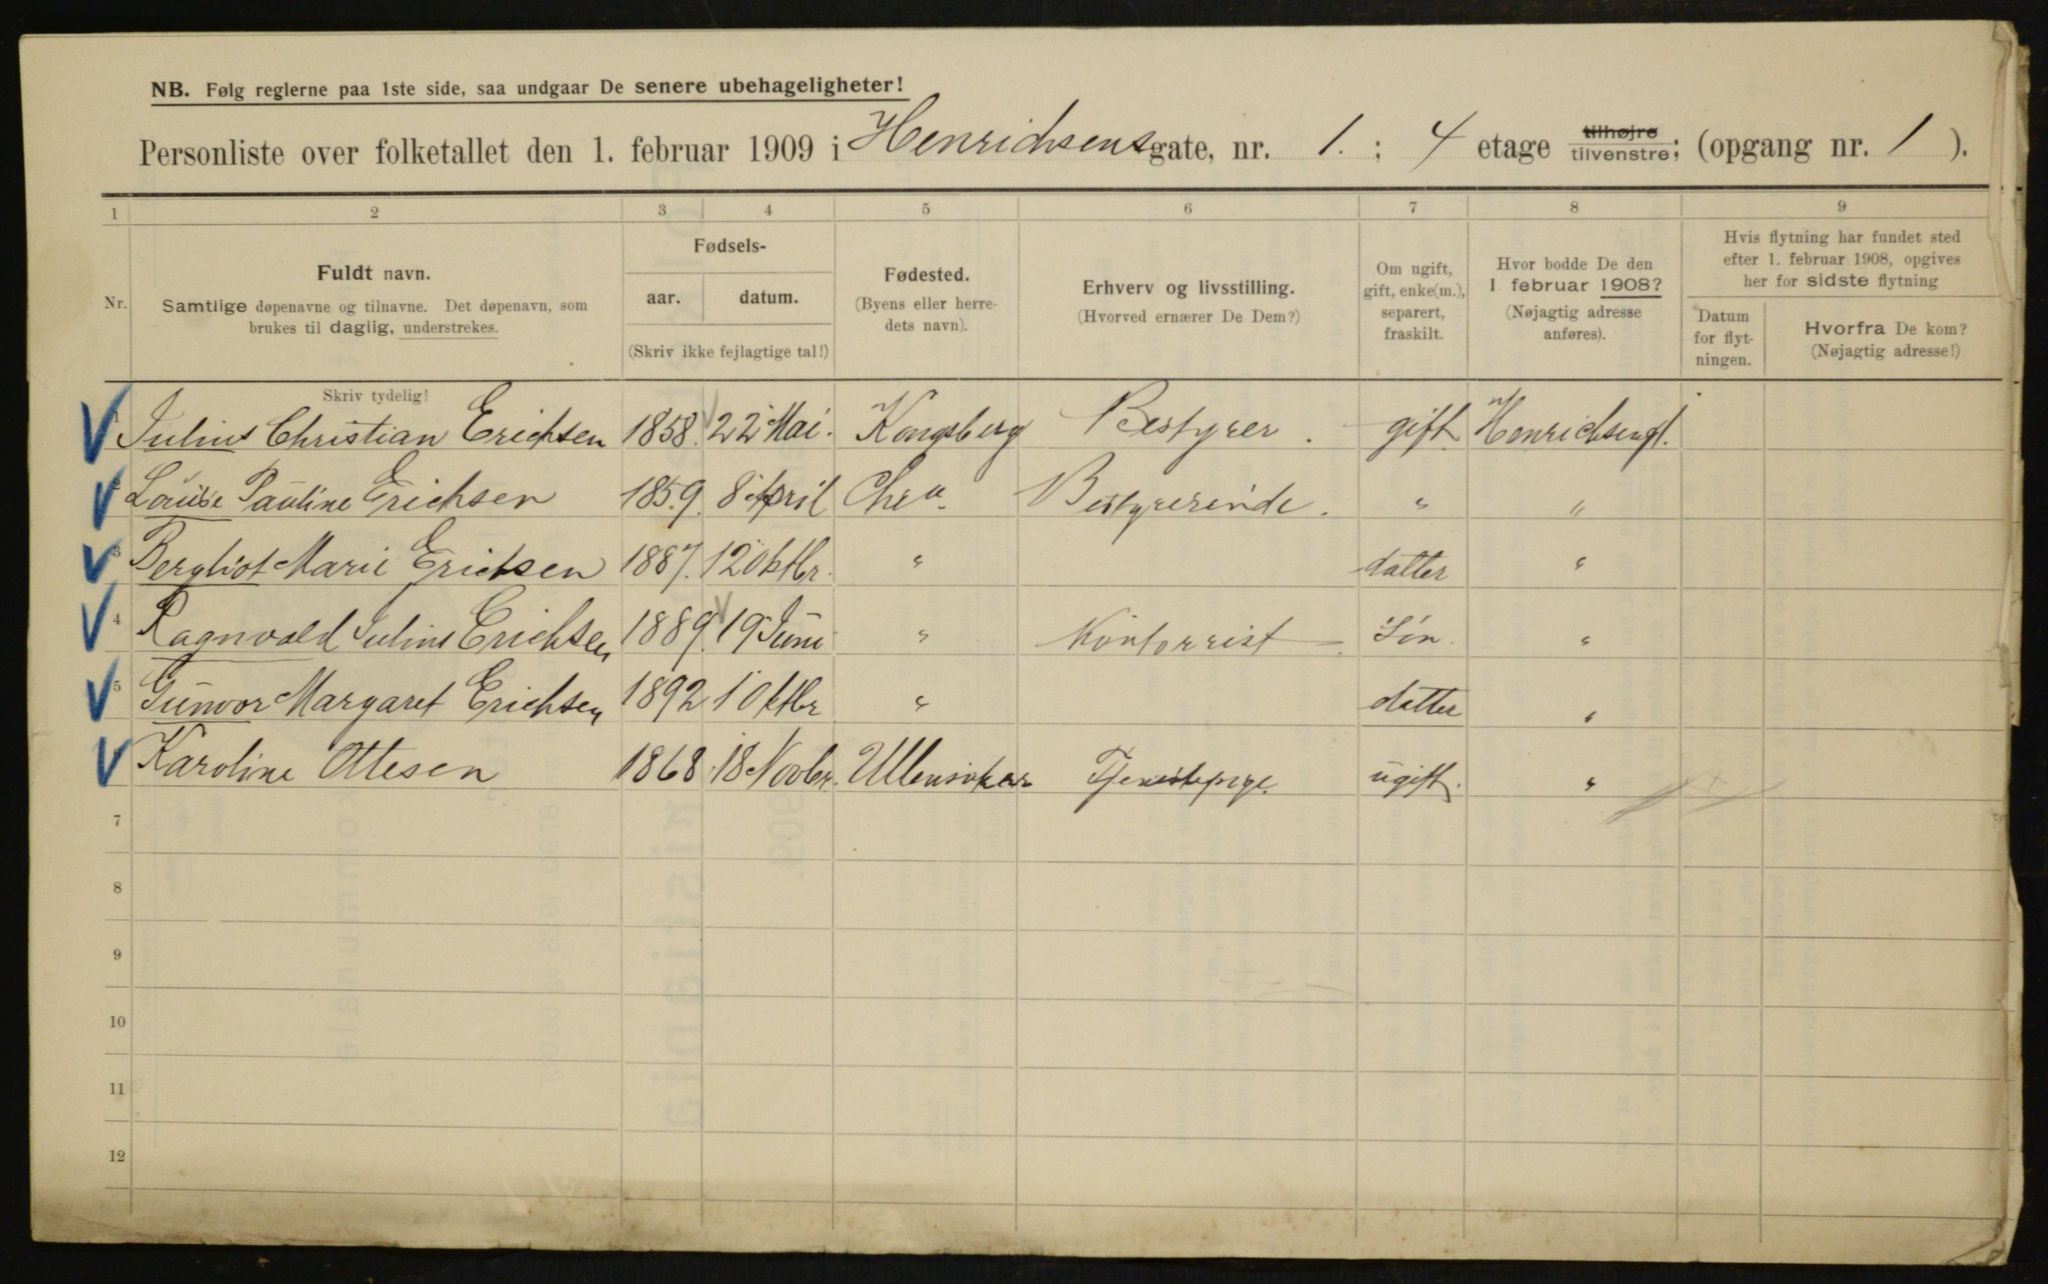 NB. Følg reglerne paa 1ste side, saa undgaar De senere ubehageligheter!
Personliste over folketallet den 1. februar 1909 i Henrichsens gate, nr. 1. ; 4 etage tilhøjre tilvenstre; (opgang nr. 1 ).
1 2 3 4 5 6 7 8 9
Nr.
Fuldt navn.
Samtlige døpenavne og tilnavne. Det døpenavn, som
brukes til daglig, understrekes.
Skriv tydelig!
Fødsels-
aar. datum.
(Skriv ikke fejlagtige tal!)
Fødested.
(Byens eller herre-
dets navn).
Erhverv og livsstilling.
(Hvorved ernærer De Dem?)
Om ugift,
gift, enke(m.),
separert,
fraskilt.
Hvor bodde De den
1 februar 1908?
(Nøjagtig adresse
anføres).
Hvis flytning har fundet sted
efter 1. februar 1908, opgives
her for sidste flytning
Datum
for flyt-
ningen.
Hvorfra De kom?
(Nøjagtig adresse!)
Julius Christian Erichsen 1858. 22 Mai. Kongsberg Bestyrer. gift. Henrichsengt.
Louise Pauline Erichsen 1859. 8 April Chra. Bestyrerinde. " "
3 Bergliot Marie Erichsen 1887. 12 Oktbr. " datter "
4 Ragnvald Julius Erichsen 1889. 19 Juni " Kontorrist Søn. "
5 Gunvor Margaret Erichsen 1892 1 Oktbr " datter "
Karoline Ottesen 1868. 18 Novbr. Ullensaker Tjenestepige. ugift. "
7
8
9
10
11
12